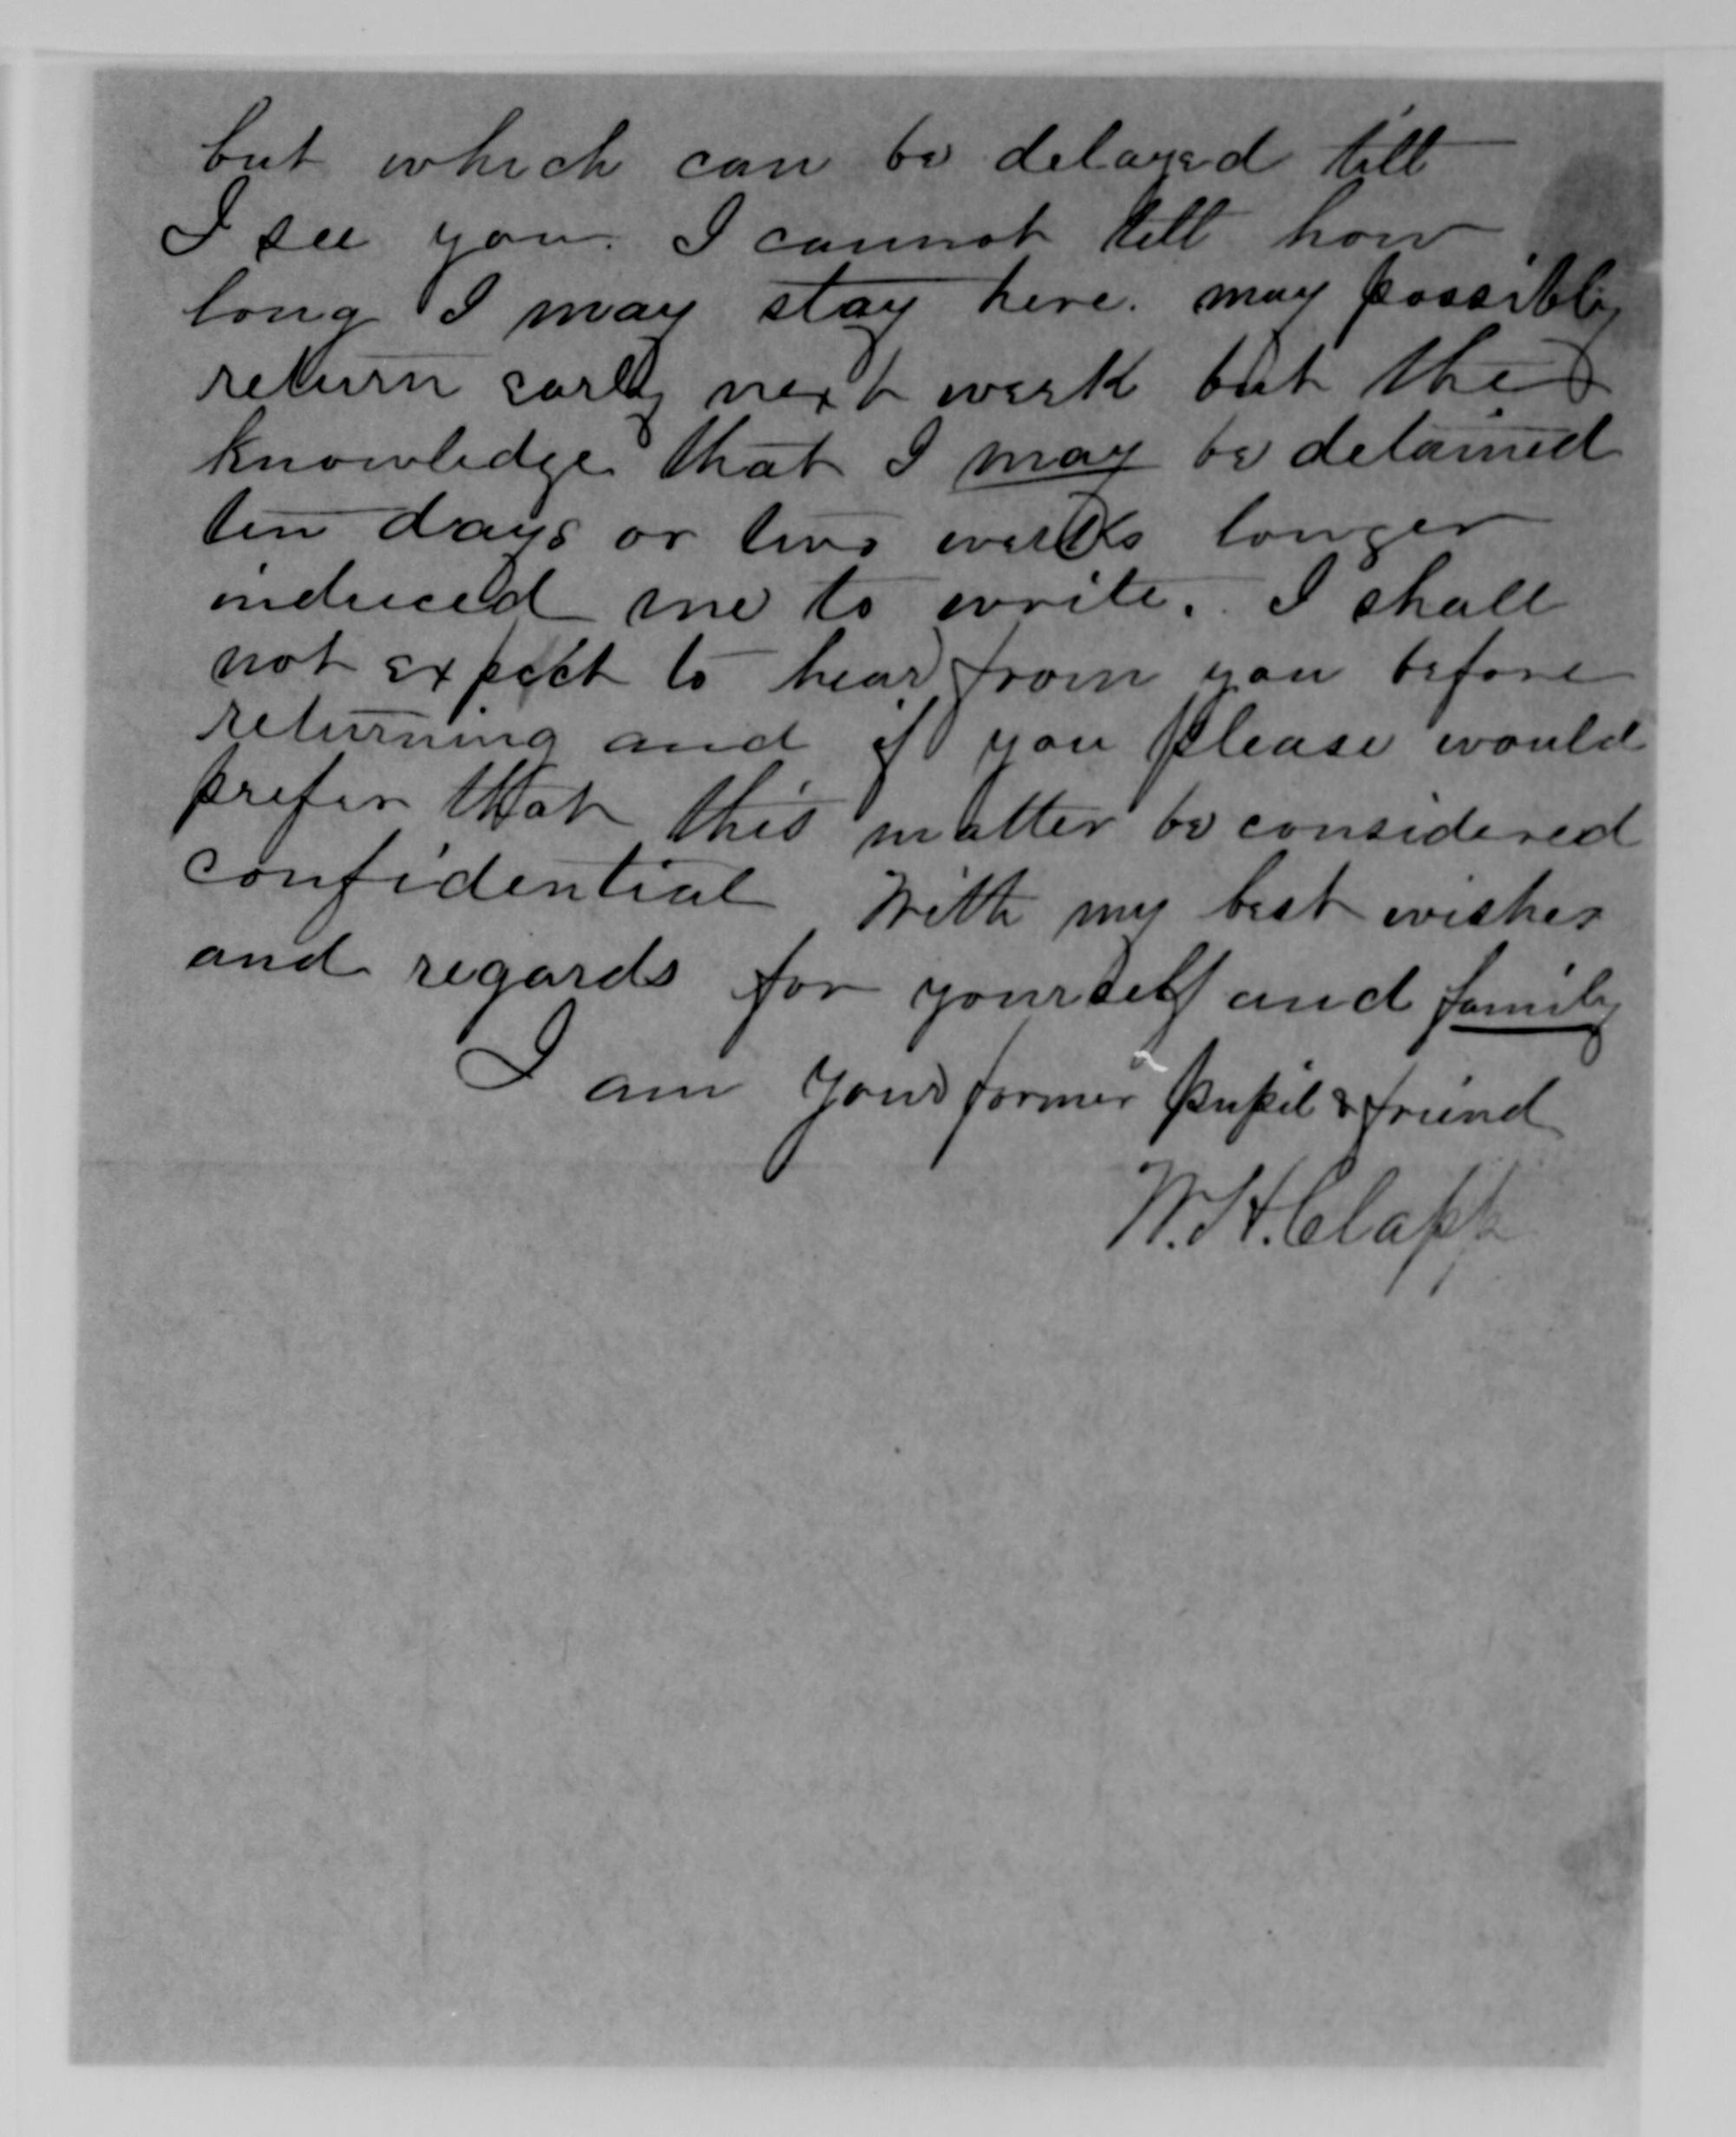 but which can be delayed till
I see you. I cannot tell how
long I may stay here. may possibly
return early next week but the
knowledge that I may be detained
ten days or two weeks longer
induced me to write. I shall
not expect to hear from you before
returning and if you please would
prefer that this matter be considered
confidential With my best wishes
and regards for yourself and family
I am your former pupil & friend
W. H. Clapp